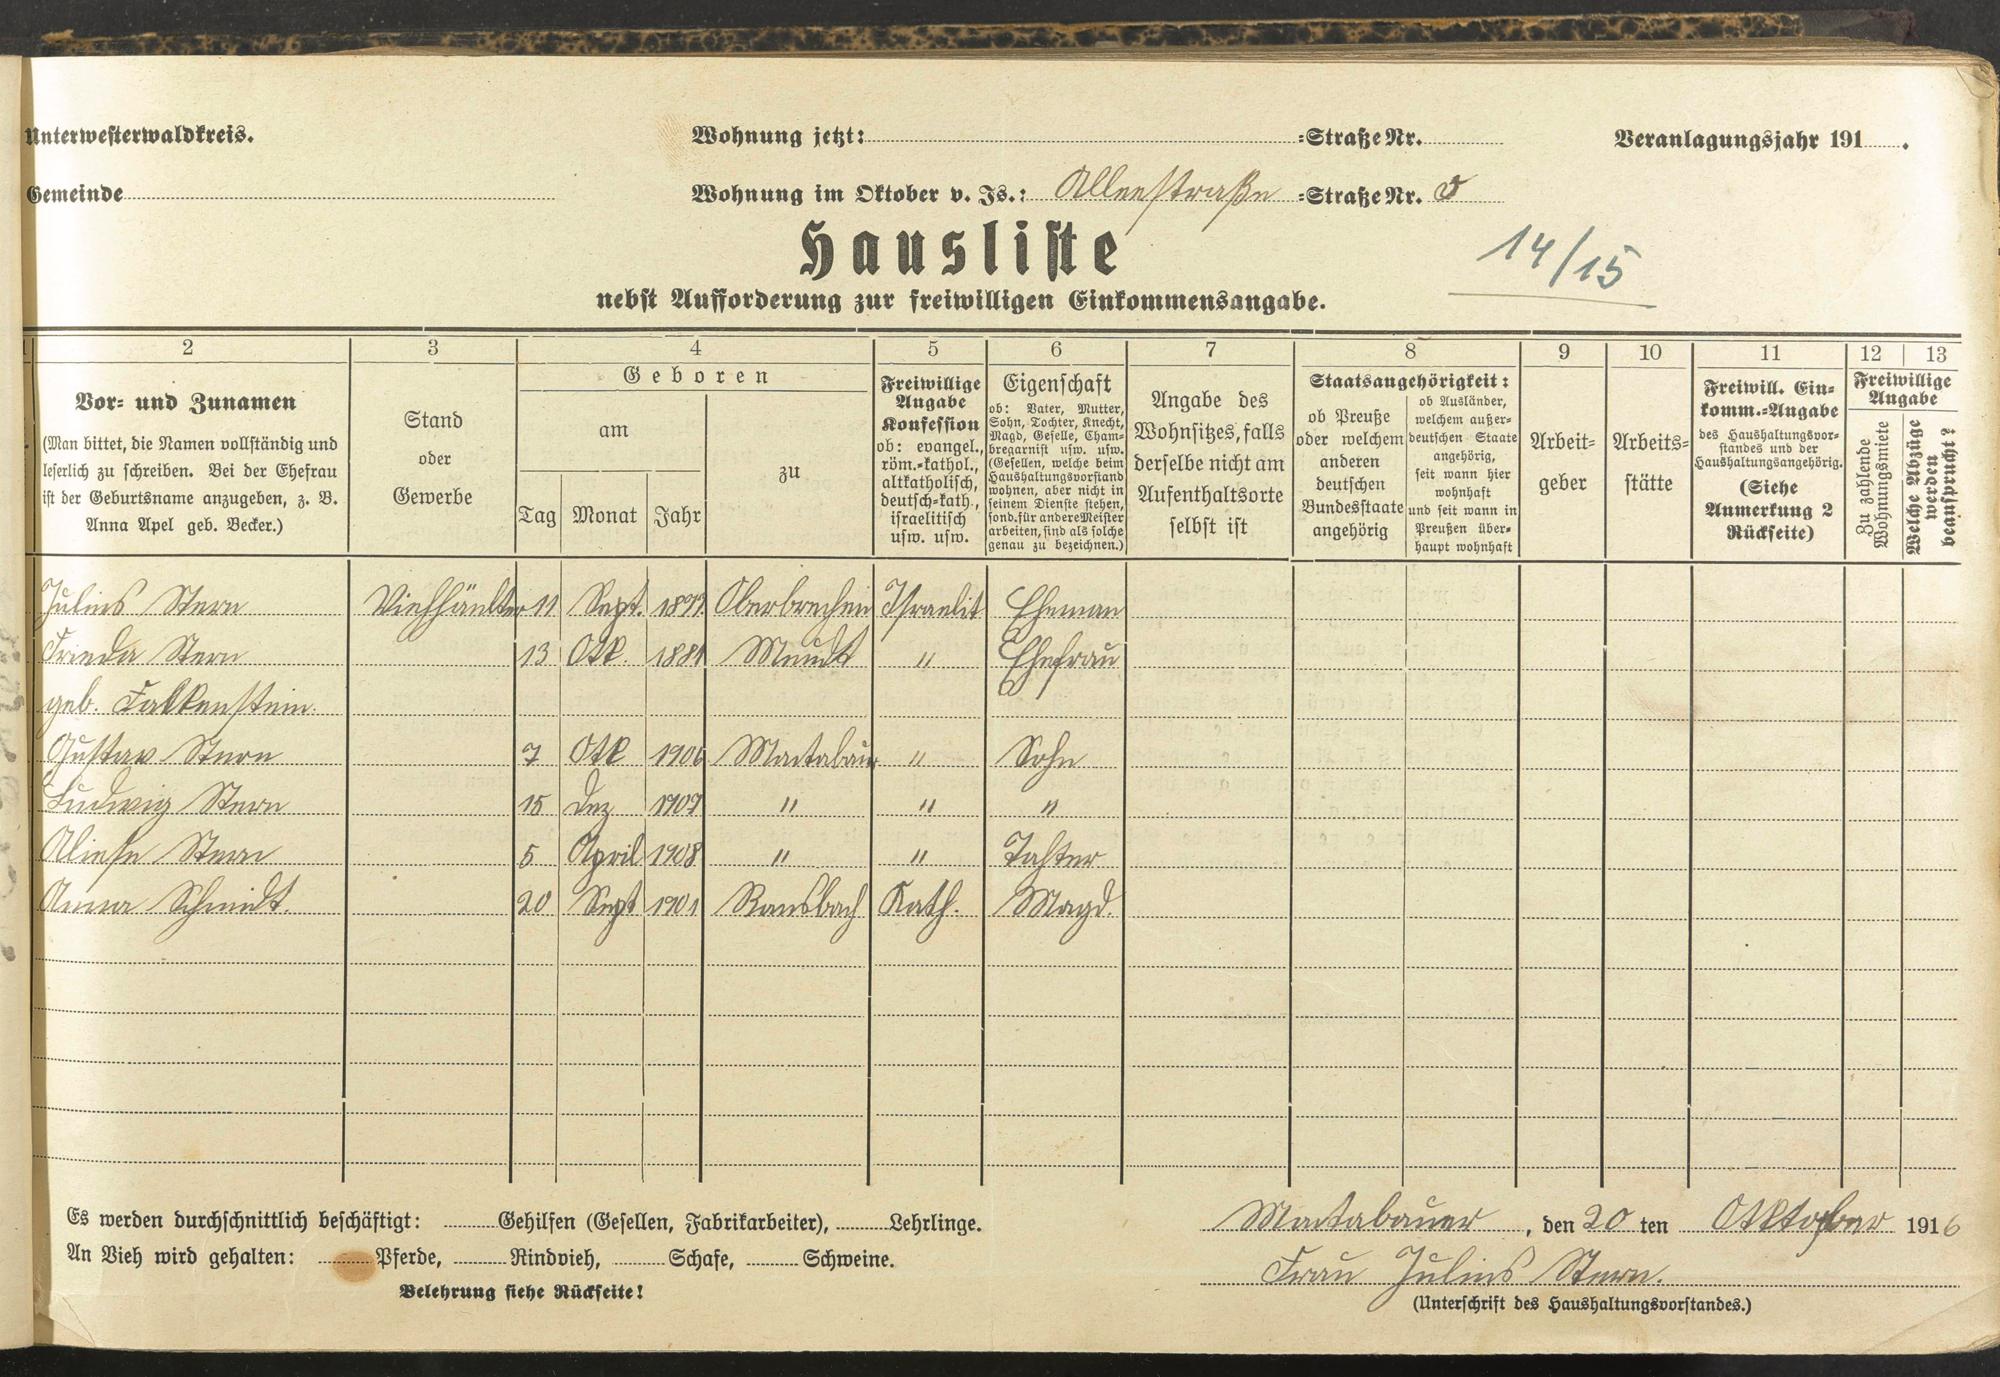 Unterwesterwaldkreis.
Wohnung jetzt: =Straße Nr.
Veranlagungsjahr 191 .
Gemeinde
Wohnung im Oktober v. Js.: Alleestraße =Straße Nr.
Hausliste
14/15
nebst Aufforderung zur freiwilligen Einkommensangabe.
2 3 4 5 6 7 8 9 10 11 12 13
Vor- und Zunamen
(Man bittet, die Namen vollständig und
leserlich zu schreiben. Bei der Ehefrau
ist der Geburtsname anzugeben, z. B.
Anna Apel geb. Becker.)
Stand
oder
Gewerbe
Geboren
am
Tag Monat Jahr
zu
Freiwillige
Angabe
Konfession
ob: evangel.,
röm.-kathol.,
altkatholisch,
deutsch-kath.,
israelitisch
usw. usw.
Eigenschaft
ob: Vater, Mutter,
Sohn, Tochter, Knecht,
Magd, Geselle, Cham-
bregarnist usw. usw.
(Gesellen, welche beim
Haushaltungsvorstand
wohnen, aber nicht in
seinem Dienste stehen,
sond. für andere Meister
arbeiten, sind als solche
genau zu bezeichnen.)
Angabe des
Wohnsitzes, falls
derselbe nicht am
Aufenthaltsorte
selbst ist
Staatsangehörigkeit:
ob Preuße
oder welchem
anderen
deutschen
Bundesstaate
angehörig
ob Ausländer,
welchem außer-
deutschen Staate
angehörig,
seit wann hier
wohnhaft
und seit wann in
Preußen über-
haupt wohnhaft
Arbeit-
geber
Arbeits-
stätte
Freiwill. Ein-
komm.-Angabe
des Haushaltungsvor-
standes und der
Haushaltungsangehörig.
(Siehe
Anmerkung 2
Rückseite)
Freiwillige
Angabe
Zu zahlende
Wohnungsmiete
Welche Abzüge
werden
beansprucht?
Julius Stern Viehhändler 11 Sept. Oberbrechen Israelit Eheman
Frieda Stern 13 Otk. 1881 " Ehefrau
geb. Falkenstein.
Gustav Stern 7 Otk 1906 Montabaur " Sohn
Ludwig Stern 15 Dez 1907 " " "
Aliese Stern 5 April 1908 " " Tohter
Anna Schmidt. 20 Sept 1901 Ransbach Kath. Magd.
Es werden durchschnittlich beschäftigt: Gehilfen (Gesellen, Fabrikarbeiter), Lehrlinge.
An Vieh wird gehalten: Pferde, Rindvieh, Schafe, Schweine.
Belehrung siehe Rückseite!
Montabauer, den 20 ten Otktober 1916
Frau Julius Stern.
(Unterschrift des Haushaltungsvorstandes.)